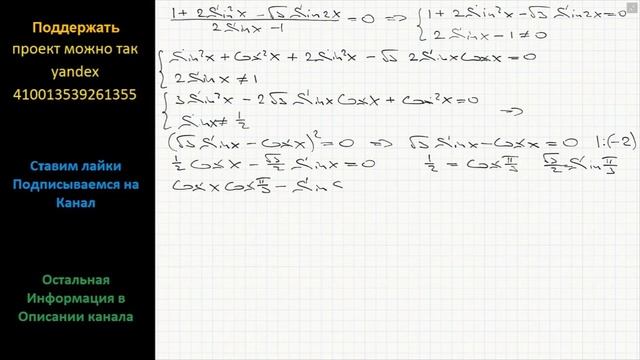 Поддержать
проект можно так
yandex
410013539261355
Ставим лайки
Подписываемся на
Канал
Остальная
Информация в
Описании канала
(1 + 2Sin²x - √3 Sin2x)/(2Sinx - 1) = 0 => { 1 + 2Sin²x - √3 Sin2x = 0
2Sinx - 1 ≠ 0
{ Sin²x + Cos²x + 2Sin²x - √3 2SinxCosx = 0
2Sinx ≠ 1
{ 3Sin²x - 2√3 SinxCosx + Cos²x = 0
Sinx ≠ 1/2 =>
(√3 Sinx - Cosx)² = 0 => √3 Sinx - Cosx = 0 |:(-2)
1/2 Cosx - √3/2 Sinx = 0 1/2 = Cos π/3 √3/2 = Sin π/3
Cosx Cos π/3 - Sin